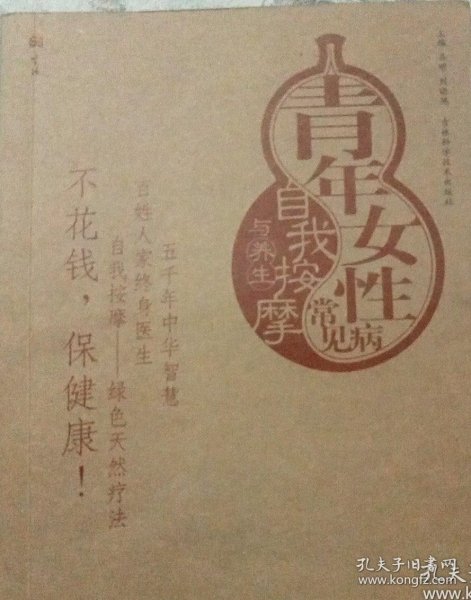 青年女性
常见病
自我按摩
与养生
五千年中华智慧
百姓人家终身医生
自我按摩——绿色天然疗法
不花钱，保健康！
孔夫子旧书网
www.kongfz.com